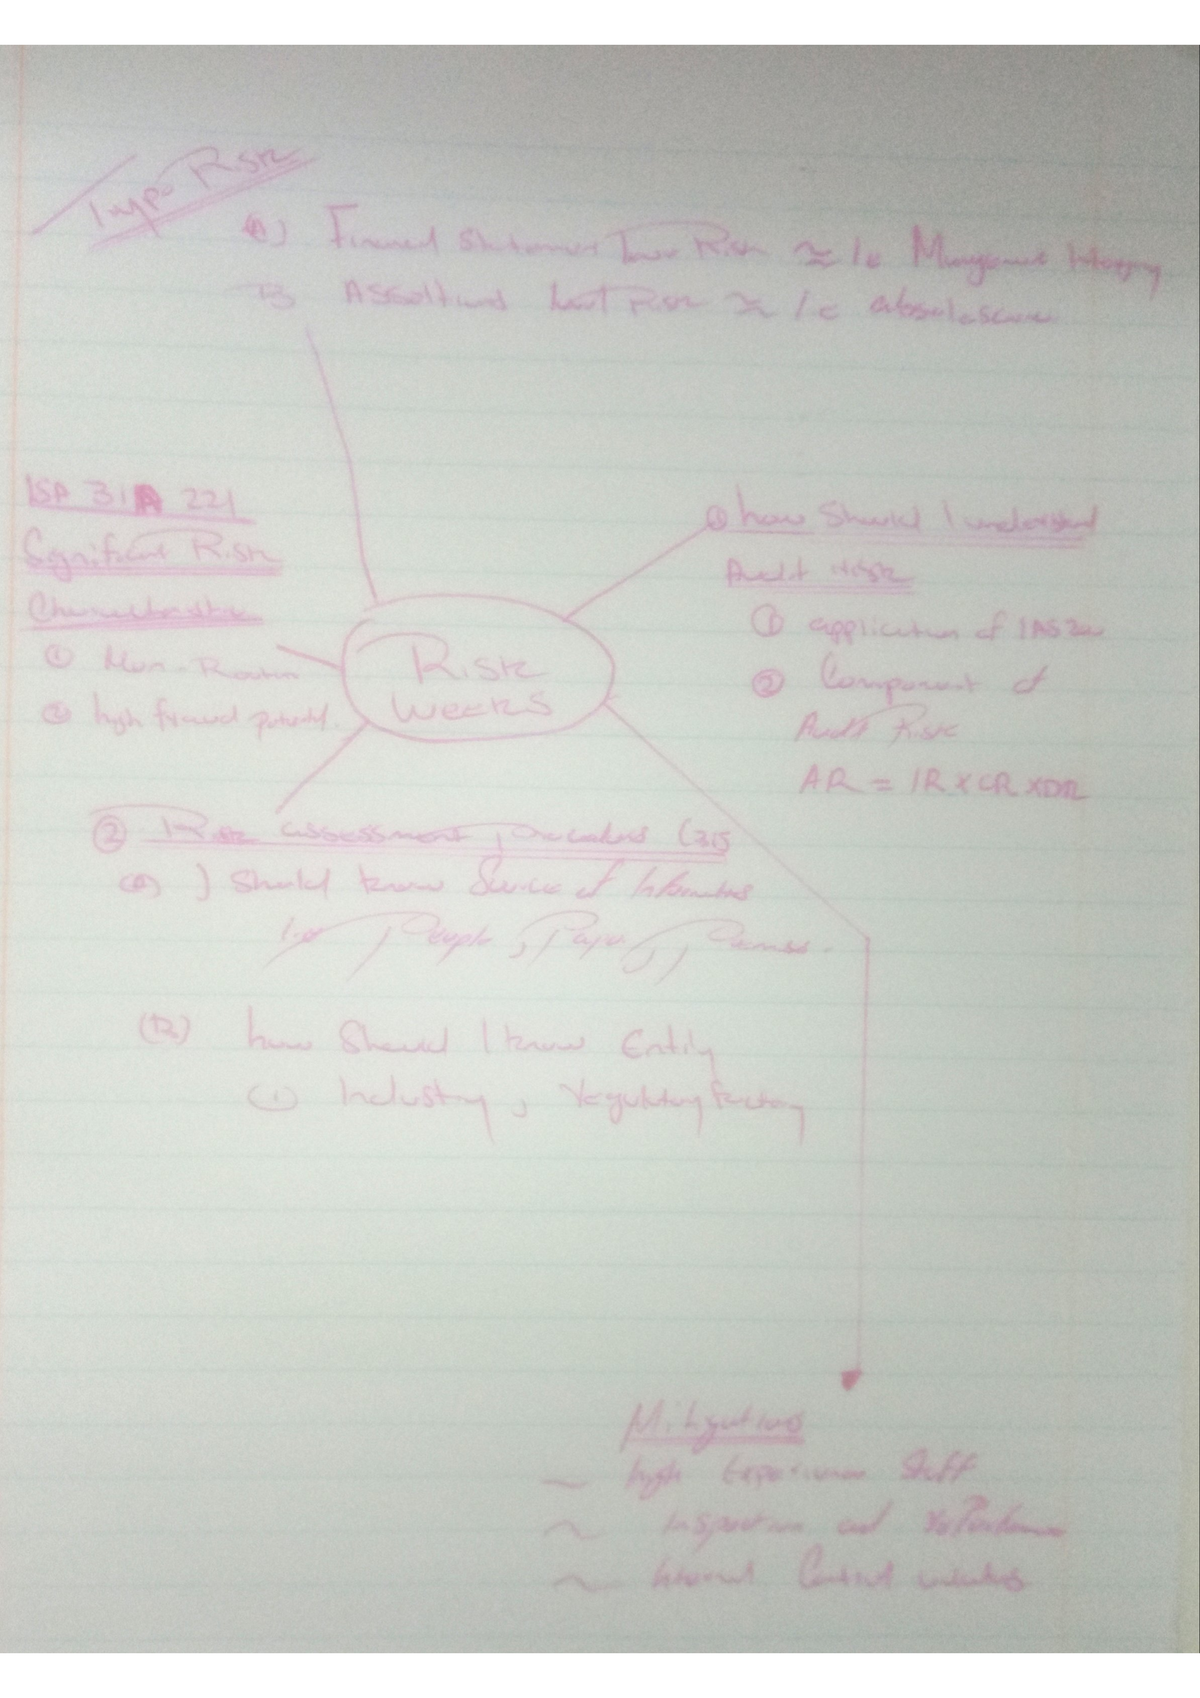 Type Risk
A) Financial Statement Level Risk ≈ i.e Management Integrity
B Level Risk ≈ i.e obsolescence
ISA 31A 221
Significant Risk
Characteristic
① Non-Routin
② high fraud potential.
Risk
Weeks
① how Should I understand
Audit Risk
① application of IAS 2
② Component of
Audit Risk
AR = IR X CR X DR
② Risk assessment, procedures (315
(A) ) Should know Source of Information
i.e People, Paper, Process.
(B) how Should I know Entity
① Industry, regulatory factory
Mitigations
~ high Experience Staff
~ Inspection and
~ Internal Control